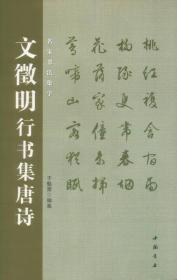 桃紅復含宿雨
柳綠更帶春烟
花落家僮未掃
鶯啼山客猶眠
名家书法集字
文徵明行书集唐诗
中国书店